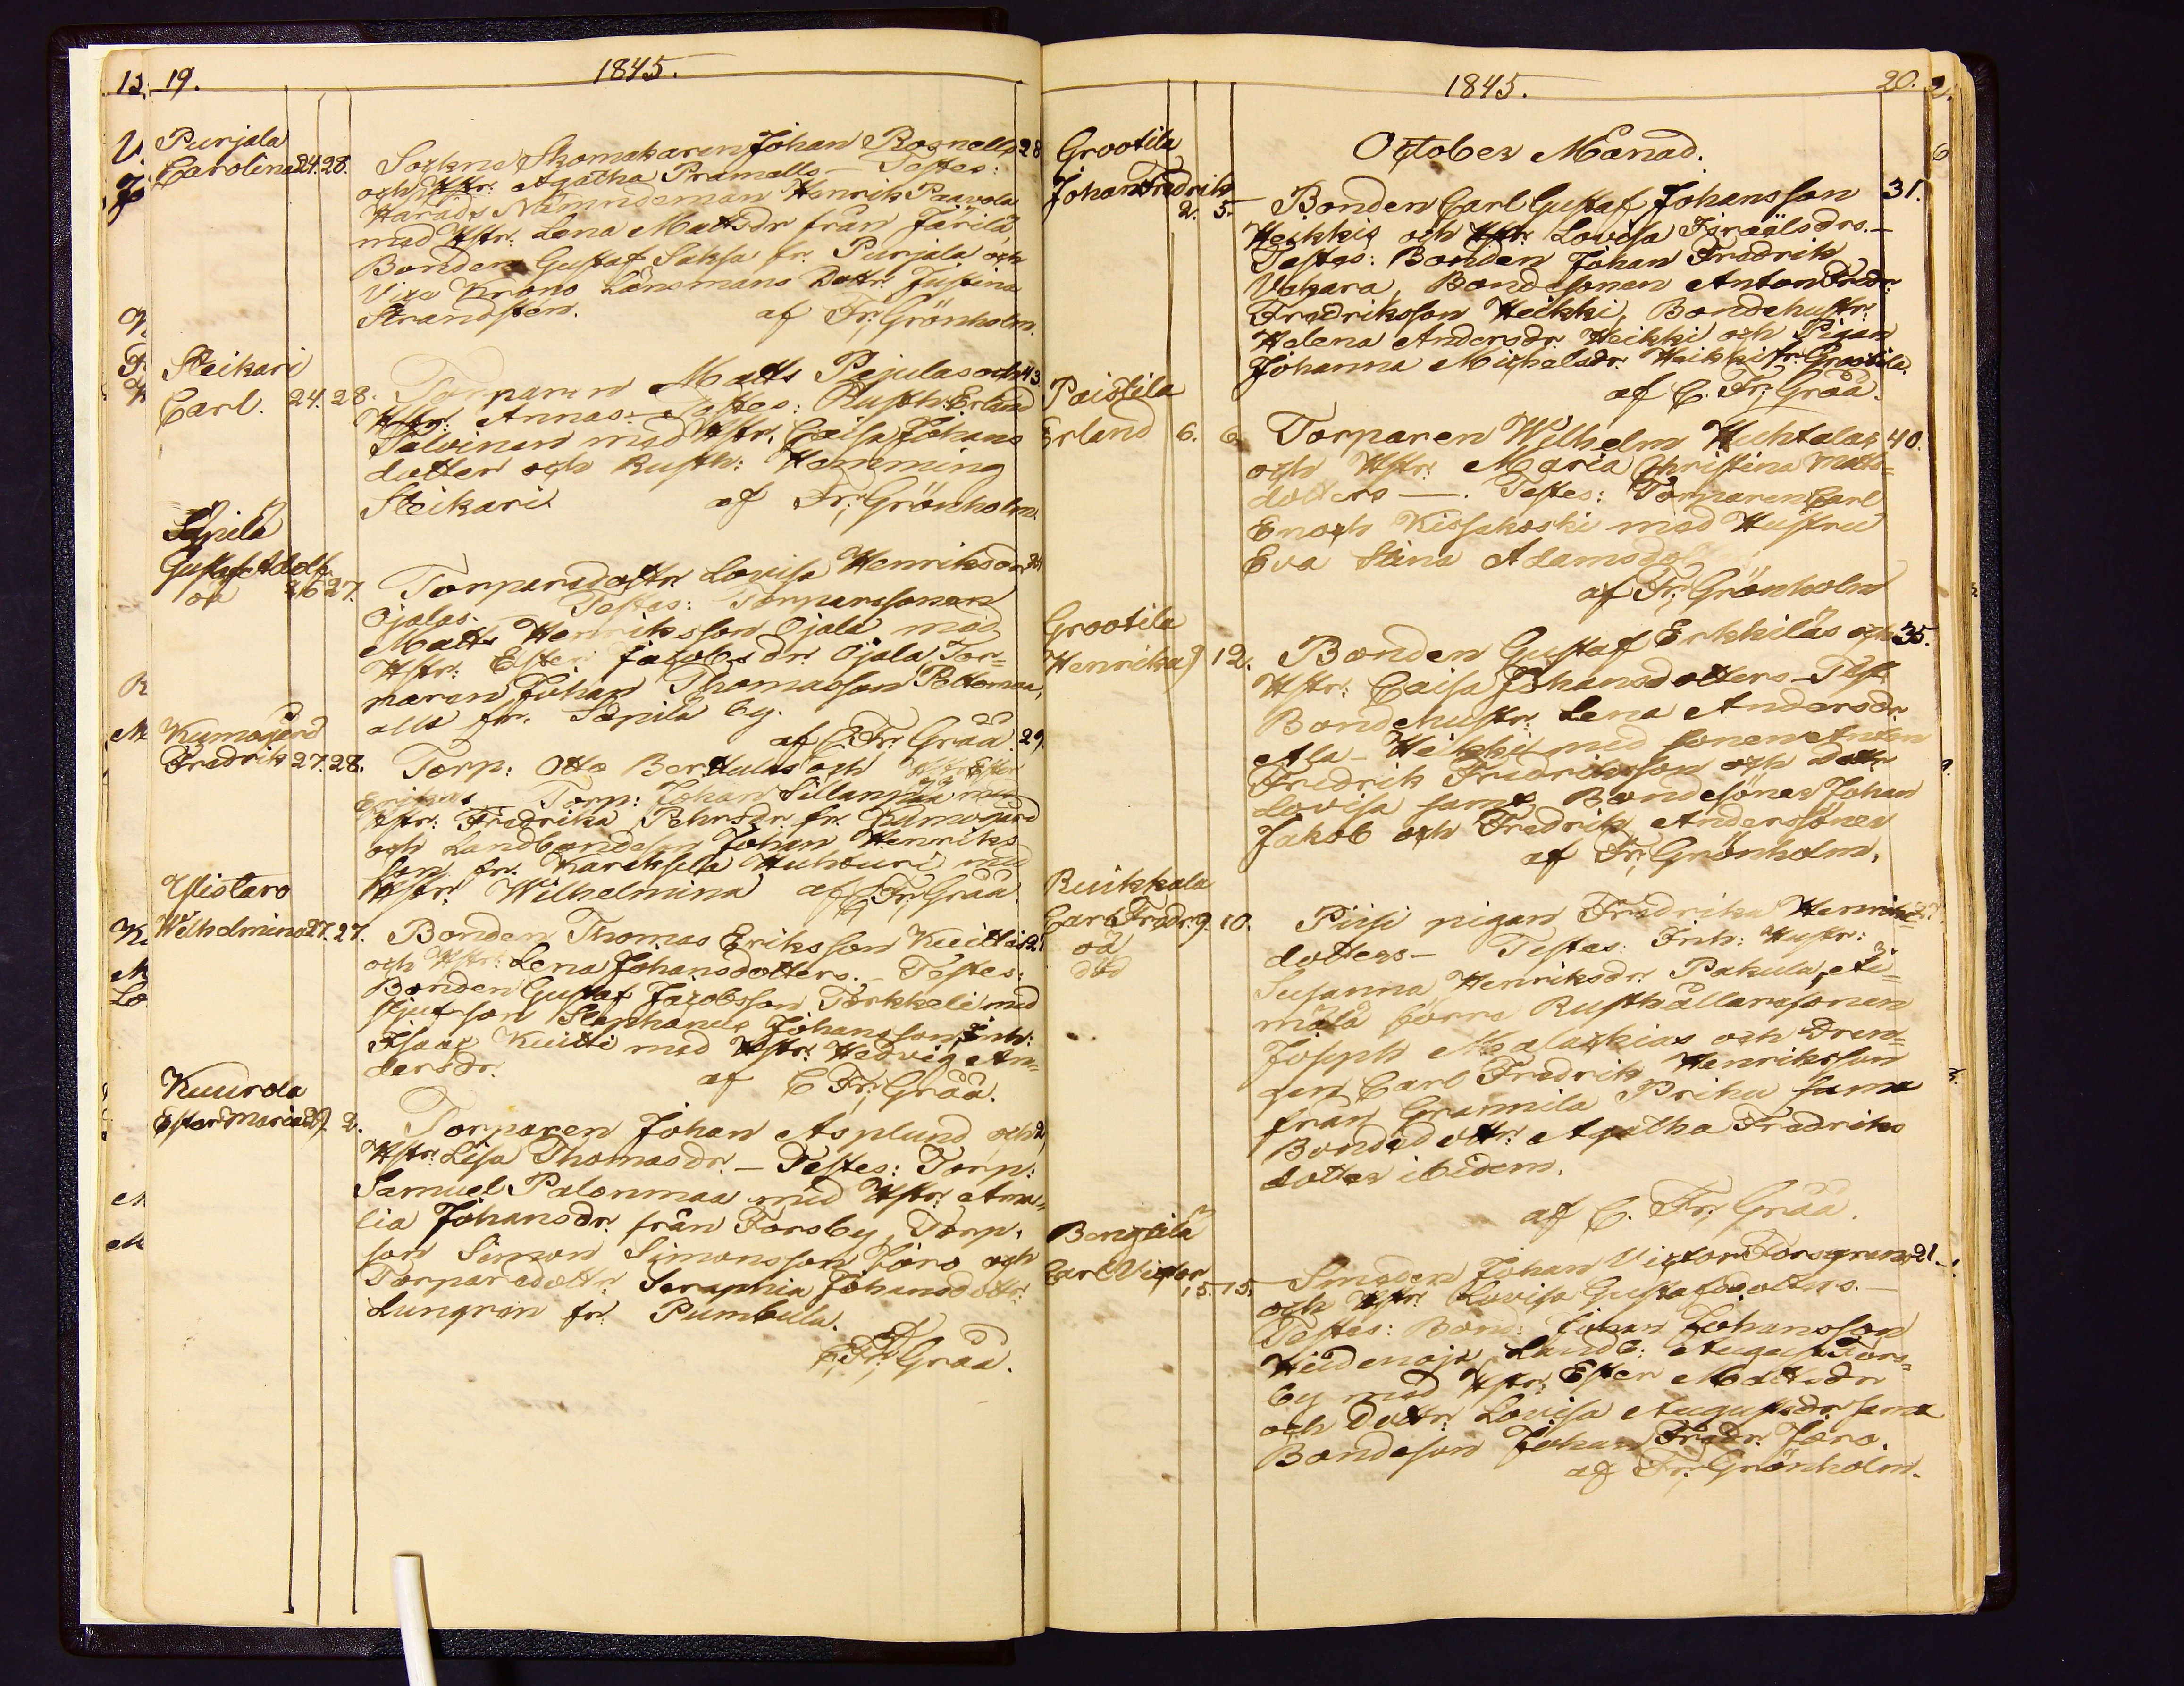 19. 1845.
Purjala
Carolina 24. 28. Sockne Skomakaren Johan Rosnells 28
och Hstr. Agatha Pramells - Testes:
Härads Nämndeman Henrik Paavola
med Hstr. Lena Mattsdr från Järilä
Bonden Gustaf Saksa fr. Purjala och
Vice Krono Länsmans Dottr. Justina
Strandsten. af Fr. Grönholm.
Steikari
Carl. 24. 28. Torparen Matts Pejulas och 43.
Hstr. Annas. - Testes: Rusth: Erland
Talvinen med Hstr. Caisa Johans
dotter och Rusth: Hemming
Steikari af Fr. Grönholm.
Säpilä
Gustaf Adolf
oä 26 27. Torparedottr Lovisa Henriksdr 24
Ojalas. Testes: Torparesonen
Matts Henriksson Ojala med
Hstr. Ester Jacobsdr. Ojala Tor=
paren Johan Thomasson Peltomaa,
alla fr. Säpilä by.
af C. Fr. Gråå.
Kumogård 29.
Fredrik 27. 28. Torp: Otto Berttulas och Hstr Ester
Erikas Torp: Johan Sillanpää med
Hstr. Fredrika Pehrsdr. fr. Cumogård
och Landbondeson Johan Henriks
son fr. Kareksela Huhturi med
Hstr. Wilhelmina af C. Fr. Gråå.
Ylistaro
Wilhelmina 27. 27. Bonden Thomas Eriksson Kuittis 21
och Hstr. Lena Johansdotters. - Testes:
Bonden Gustaf Jacobsson Torkkeli med
Stephanus Johansson, Inh:
Isaac Kuitti med Hstr. Hedvig An=
dersdr. af C. Fr. Gråå.
Kuurola
Ester Maria 29. 2. Torparen Johan Asplund och 2
Hstr. Lisa Thomasdr. - Testes: Torp:
Samuel Palonmaa med Hstr. Ama=
lia Johansdr. från Forsby, Torp.
son Simon Simonsson Jöro och
Torparedottr. Seraphia Johansdottr.
Lungren fr. Pumbula.
af
C. Fr. Gråå.
1845. 20.
October Månad.
Grootila
Johan Fredrik
2. 5. Bonden Carl Gustaf Johansson 31.
Heikkis och Hstr. Lovisa Israëlsdrs. -
Testes: Bonden Johan Fredrik
Vakara, Bondesonen Anton Fredr.
Fredriksson Heikki, Bondehustr.
Helena Andersdr. Heikki och Pigan
Johanna Michelsdr. Heikki fr. Grootila.
af C. Fr. Gråå.
Paistila
Erland 6. 6 Torparen Wilhelm Huhtalas 40.
och Hstr. Maria Christina Matts=
dotters -. Testes: Torparen Carl
Enoch Kissakoski med Hustru
Eva Stina Adamsdr
af Fr. Grönholm
Grootila
Henrika 9 12. Bonden Gustaf Erkkiläs och 35.
Hstr. Caisa Johansdotters - Test
Bondehustr. Lena Andersdr.
Ala-Heikki med sonen Anton
Fredrik Fredriksson och Dottr
Lovisa samt Bondesöner Johan
Jakob och Fredrik Anderssöner
af Fr. Grönholm.
Ruikkala
Carl Fredr. 9. 10. Piisi pigan Fredrika Henriks 27.
oä
död
dotters - Testes: Inh: Hustr:
Susanna Henriksdr. Pakula, Äi=
mälä förra Rusthållaressonen
Joseph Malachias och Dren=
gen Carl Fredrik Henriksson
från Grannila Prihu samt
Bondedottr. Agatha Fredriks
dotter ibidem.
af C. Fr. Gråå.
Bengtilä
Carl Victor 15. 15. Smeden Johan Victor Forsgrens 21.
och Hstr. Lovisa Gustafsdotters. -
Testes: Bond: Johan Johansson
Heidenoja Landb: August Fors=
by med Hstr. Ester Mattsdr
och Dottr. Lovisa Augustsdr samt
Bondeson Johan Fredr. Jöro.
af Fr. Grönholm.